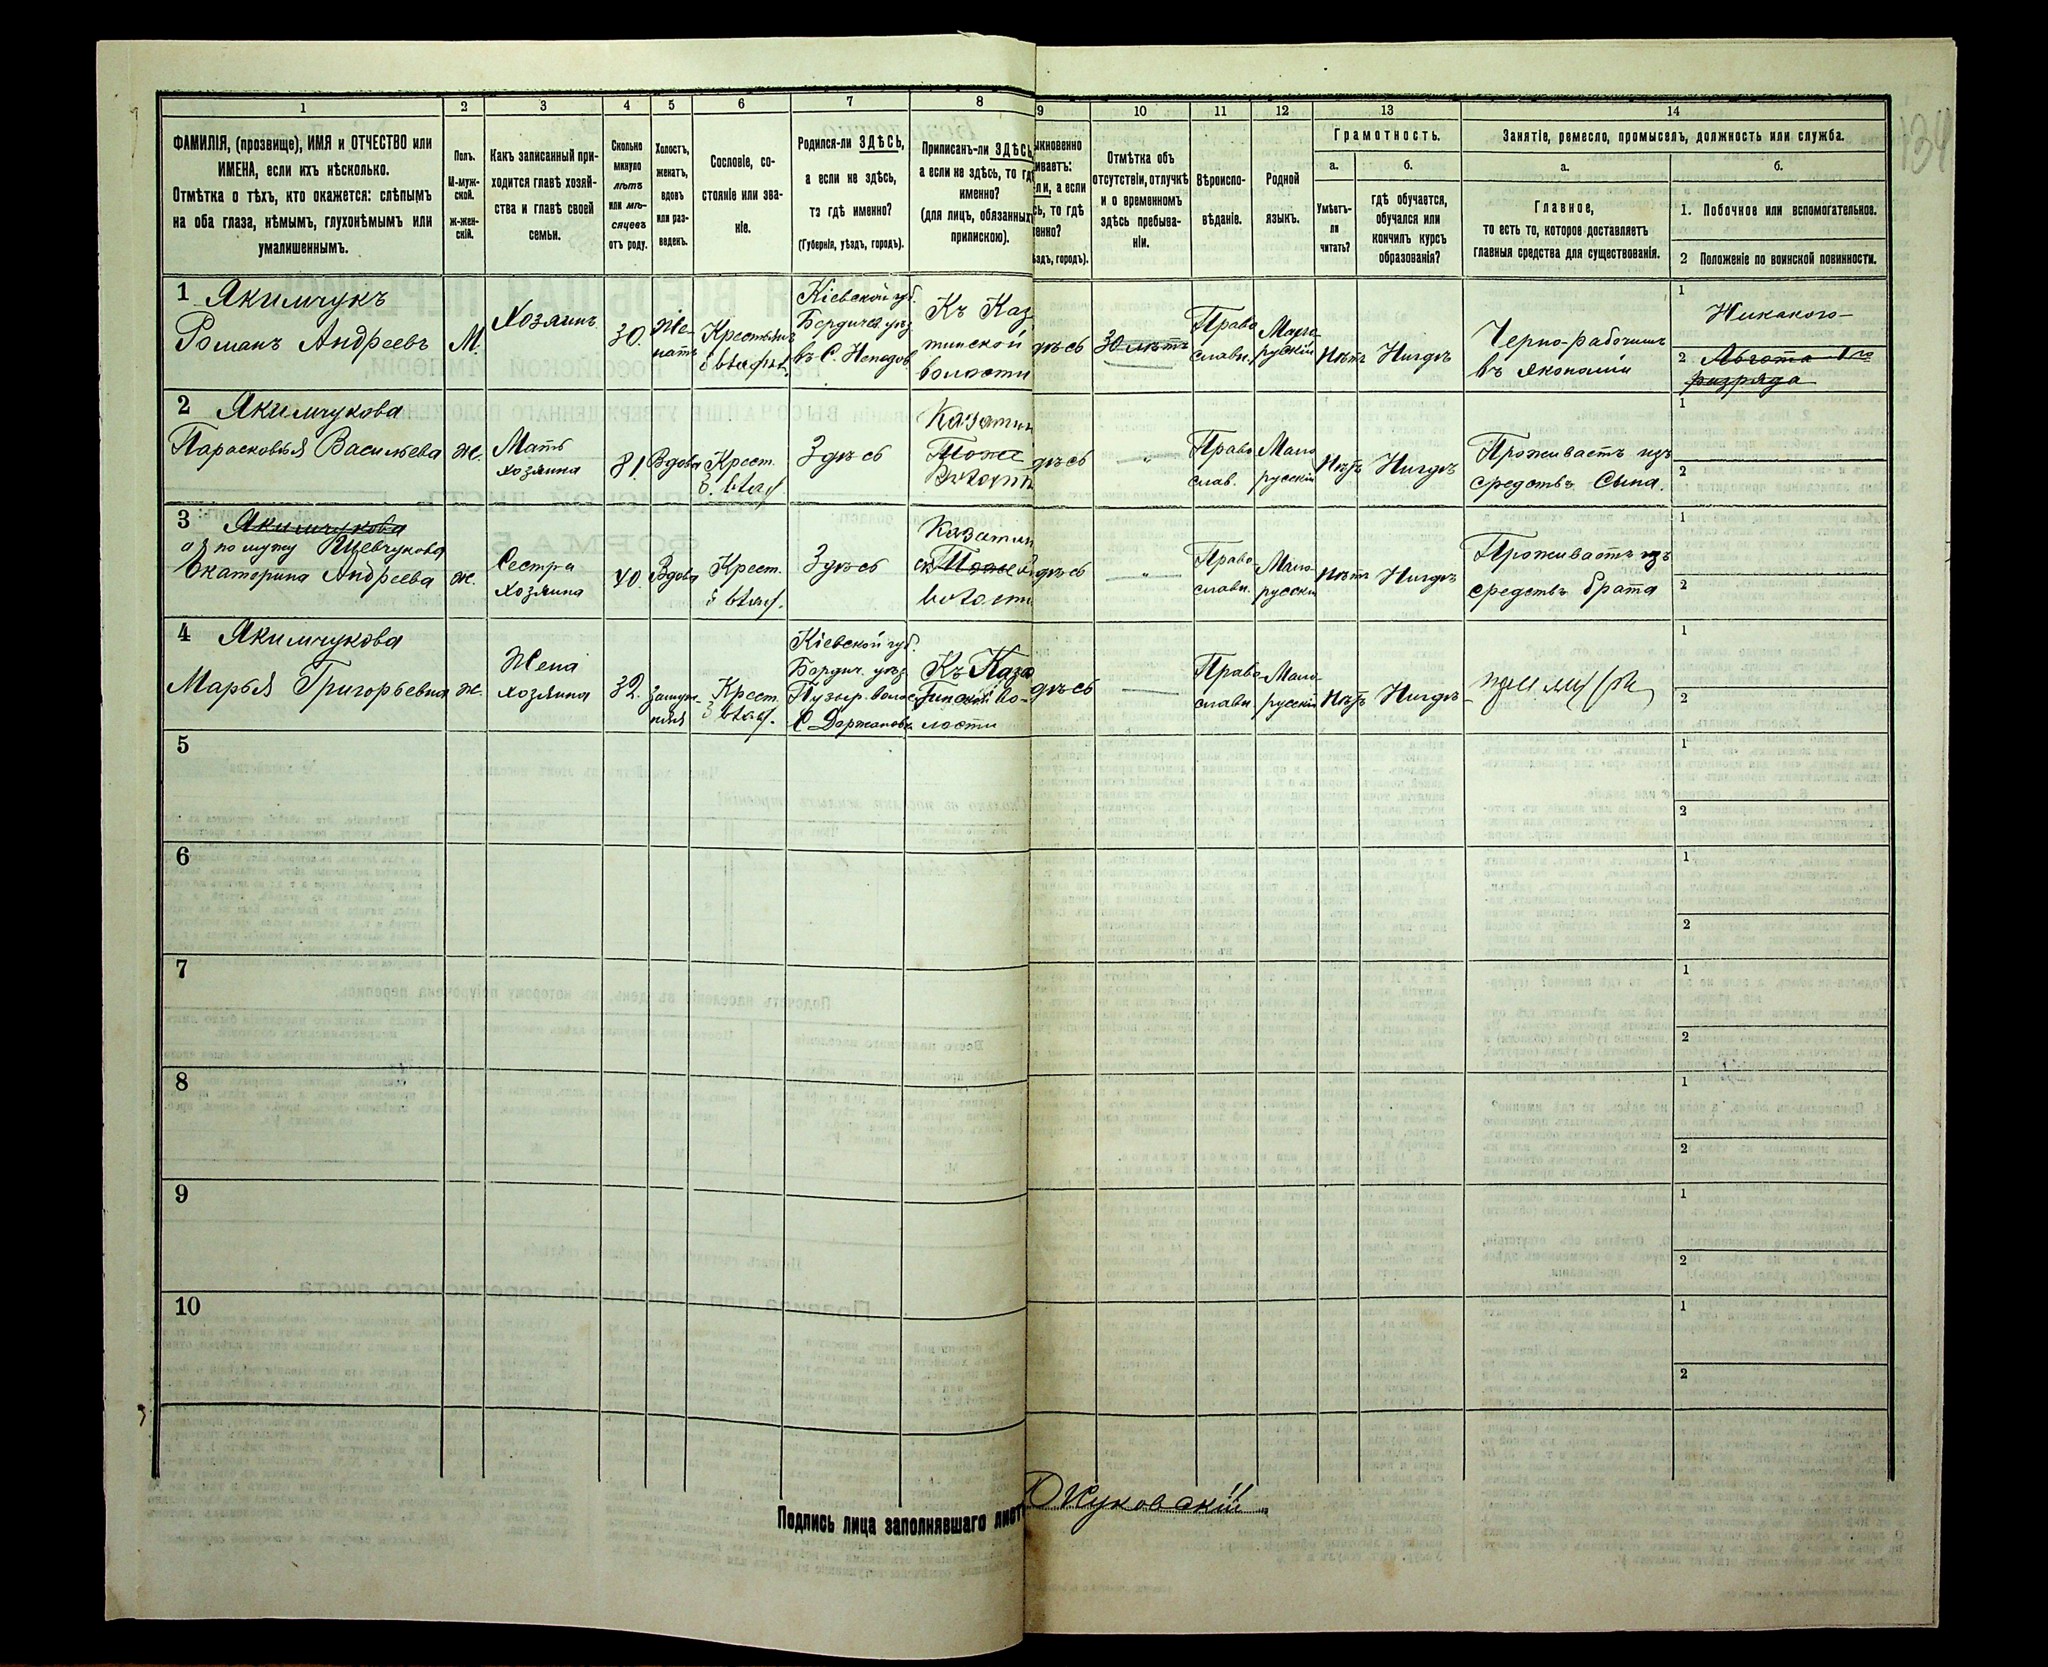 1
2
3
4
5
6
7
8
9
10
11
12
13
14
134
ФАМИЛІЯ, (прозвище), ИМЯ и ОТЧЕСТВО или
ИМЕНА, если ихъ нѣсколько.
Отмѣтка о тѣхъ, кто окажется: слѣпымъ
на оба глаза, нѣмымъ, глухонѣмымъ или
умалишеннымъ.
Полъ.
М-муж-
ской.
ж-жен-
скій.
Какъ записанный при-
ходится главѣ хозяй-
ства и главѣ своей
семьи.
Сколько
минуло
лѣтъ
или мѣ-
сяцевъ
отъ роду.
Холостъ,
женатъ,
вдовъ
или раз-
веденъ.
Сословіе, со-
стояніе или зва-
ніе.
Родился-ли ЗДѢСЬ,
а если не здѣсь,
то гдѣ именно?
(Губернія, уѣздъ, городъ).
Приписанъ-ли ЗДѢСЬ,
а если не здѣсь, то гдѣ
именно?
(для лицъ, обязанныхъ
припискою).
ыкновенно
иваетъ:
ли, а если
сь, то гдѣ
енно?
ѣздъ, городъ).
Отмѣтка объ
отсутствіи, отлучкѣ
и о временномъ
здѣсь пребыва-
ніи.
Вѣроиспо-
вѣданіе.
Родной
языкъ.
Грамотность.
а.
Умѣетъ-
ли
читать?
б.
гдѣ обучается,
обучался или
кончилъ курсъ
образованія?
Занятіе, ремесло, промыселъ, должность или служба.
а.
Главное,
то есть то, которое доставляетъ
главныя средства для существованія.
б.
1. Побочное или вспомогательное.
2 Положеніе по воинской повинности.
1 Якимчукъ
Романъ Андреевъ
М.
Хозяинъ
30.
Же-
натъ
Крестьян
Кіевской губ.
Бердичев. уѣз
въ с. Непедов
Къ Каза
тинской
волости
дѣсь
30 лѣтъ
Право
славн.
Мало-
русскій
Нѣтъ
Нигдѣ
Черно-рабочимъ
въ экономіи
1
Никакого-
2 Льгота 1го
разряда
2 Якимчукова
Парасковья Васильева
ж.
Мать
хозяина
81.
Вдова
Крест.
Здѣсь
Казатин
Тоже
Волости
дѣсь
"
Право
слав.
Мало
русскій
Нѣтъ
Нигдѣ
Проживаетъ изъ
средствъ Сына.
1
2
3 Якимчукова
а по мужу Шевчукова
Екатерина Андреева
ж.
Сестра
хозяина
40.
Вдова
Крест.
Здѣсь
Казатин
Тоже
волости
дѣсь
"
Право
славн.
Мало-
русскій
Нѣтъ
Нигдѣ
Проживаетъ изъ
средствъ брата
1
2
4 Якимчукова
Марья Григорьевна
ж.
Жена
хозяина
32.
Замуж-
няя
Крест.
Кіевской губ.
Бердич. уѣз.
Пузыр. волос.
С Держановк
Къ Каза
тинской во-
лости
дѣсь
Право
славн
Мало-
русскій
Нѣтъ
Нигдѣ-
при мужѣ
1
2
5
1
2
6
1
2
7
1
2
8
1
2
9
1
2
10
1
2
Подпись лица заполнявшаго листъ
Жуковскій